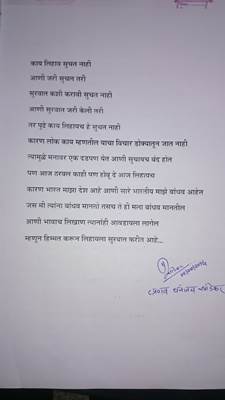 काय लिहाव सुचत नाही
आणी जरी सुचल तरी
सुरवात कशी करावी सुचत नाही
आणी सुरवात जरी केली तरी
तर पुढे काय लिहायच हे सुचत नाही
कारण लोक काय म्हणतील याचा विचार डोक्यातून जात नाही
त्यामुळे मनावर एक दडपण येत आणी सुचायच बंद होत
पण आज ठरवल काही पण होवू दे आज लिहायच
कारण भारत माझा देश आहे आणी सारे भारतीय माझे बांधव आहेत
जस मी त्यांना बांधव मानतो तसच ते ही मला बांधव मानतील
आणी भावाच लिखाण त्यांनाही आवडायला लागेल
म्हणून हिम्मत करून लिहायला सुरवात करीत आहे...